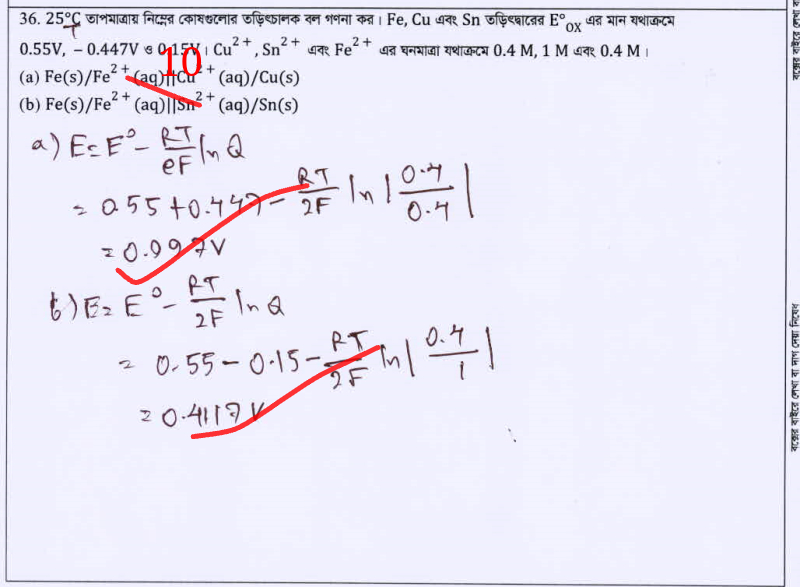 36. 25°C তাপমাত্রায় নিম্নের কোষগুলোর তড়িৎচালক বল গণনা কর। Fe, Cu এবং Sn তড়িৎদ্বারের E°OX এর মান যথাক্রমে
T
0.55V, − 0.447V ও 0.15V। Cu²⁺, Sn²⁺ এবং Fe²⁺ এর ঘনমাত্রা যথাক্রমে 0.4 M, 1 M এবং 0.4 M।
10
(a) Fe(s)/Fe²⁺(aq)||Cu²⁺(aq)/Cu(s)
(b) Fe(s)/Fe²⁺(aq)||Sn²⁺(aq)/Sn(s)
a) E = E° − RT/eF ln Q
= 0.55 + 0.447 − RT/2F ln |0.4/0.4|
= 0.997 V
b) E = E° − RT/2F ln Q
= 0.55 − 0.15 − RT/2F ln |0.4/1|
= 0.4117 V
বক্সের বাইরে লেখা বা দাগ দেয়া নিষেধ